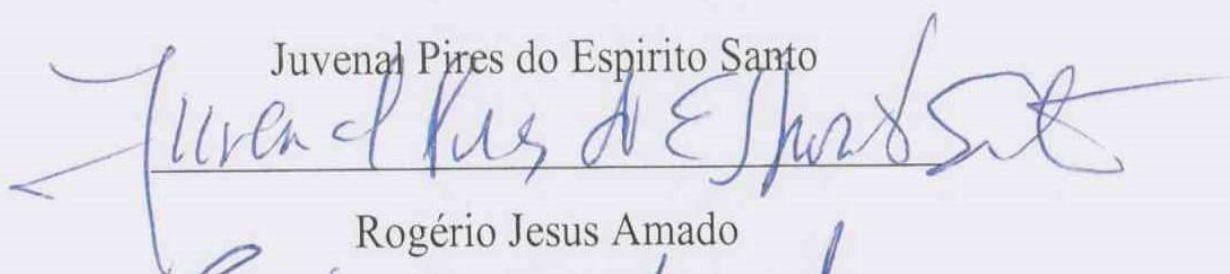 Juvenal Pires do Espirito Santo
Juvenal Pires do Espirito Santo
Rogério Jesus Amado